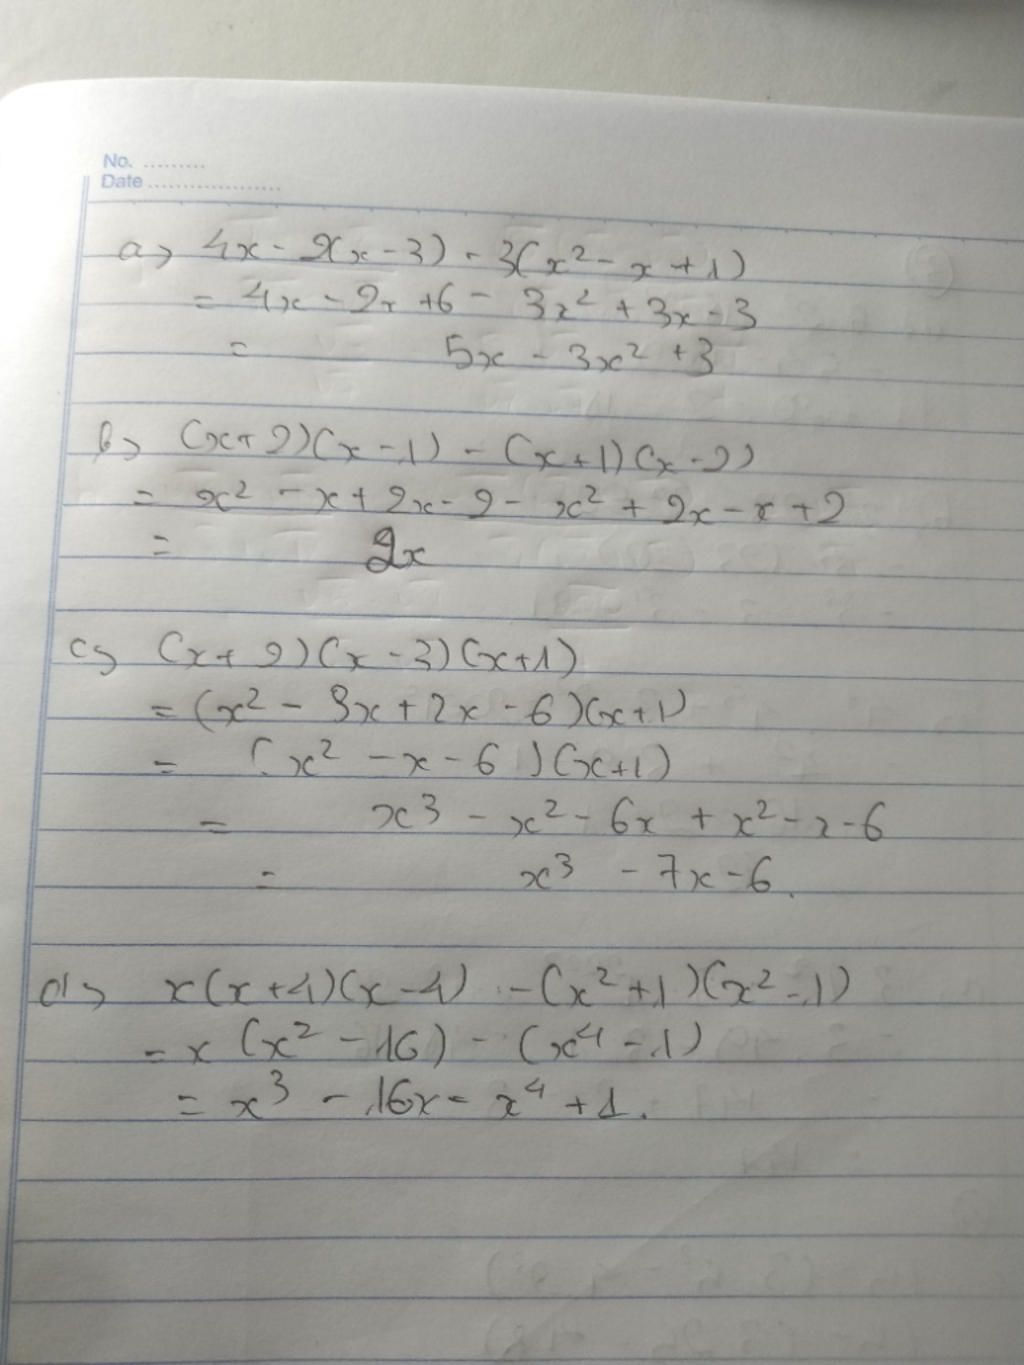 No. .........
Date ...................
a> 4x - 2(x - 3) - 3(x² - x + 1)
= 4x - 2x + 6 - 3x² + 3x - 3
= 5x - 3x² + 3
b> (x + 2)(x - 1) - (x + 1)(x - 2)
= x² - x + 2x - 2 - x² + 2x - x + 2
= 2x
c> (x + 2)(x - 3)(x + 1)
= (x² - 3x + 2x - 6)(x + 1)
= (x² - x - 6)(x + 1)
= x³ - x² - 6x + x² - x - 6
= x³ - 7x - 6.
d> x(x + 4)(x - 4) - (x² + 1)(x² - 1)
= x (x² - 16) - (x⁴ - 1)
= x³ - 16x - x⁴ + 1.